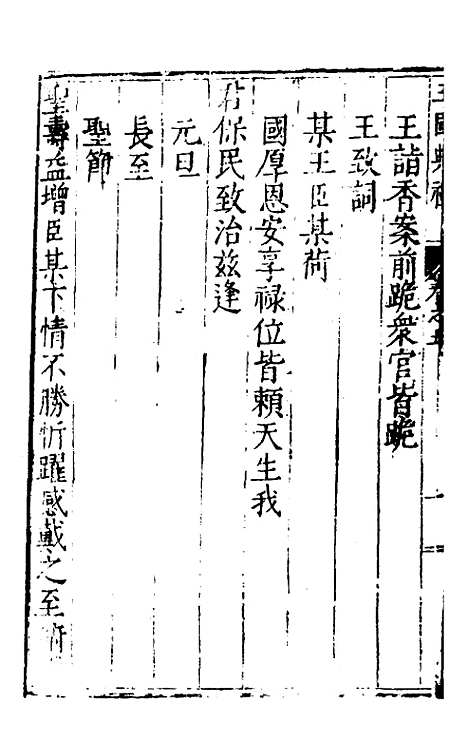 王國典禮 卷之五
王詣香案前跪衆官皆跪
王致詞
某王臣某荷
國厚恩安享禄位皆賴天生我
君保民致治兹逢
元旦
長至
聖節
聖壽益增臣某下情不勝忻躍感戴之至